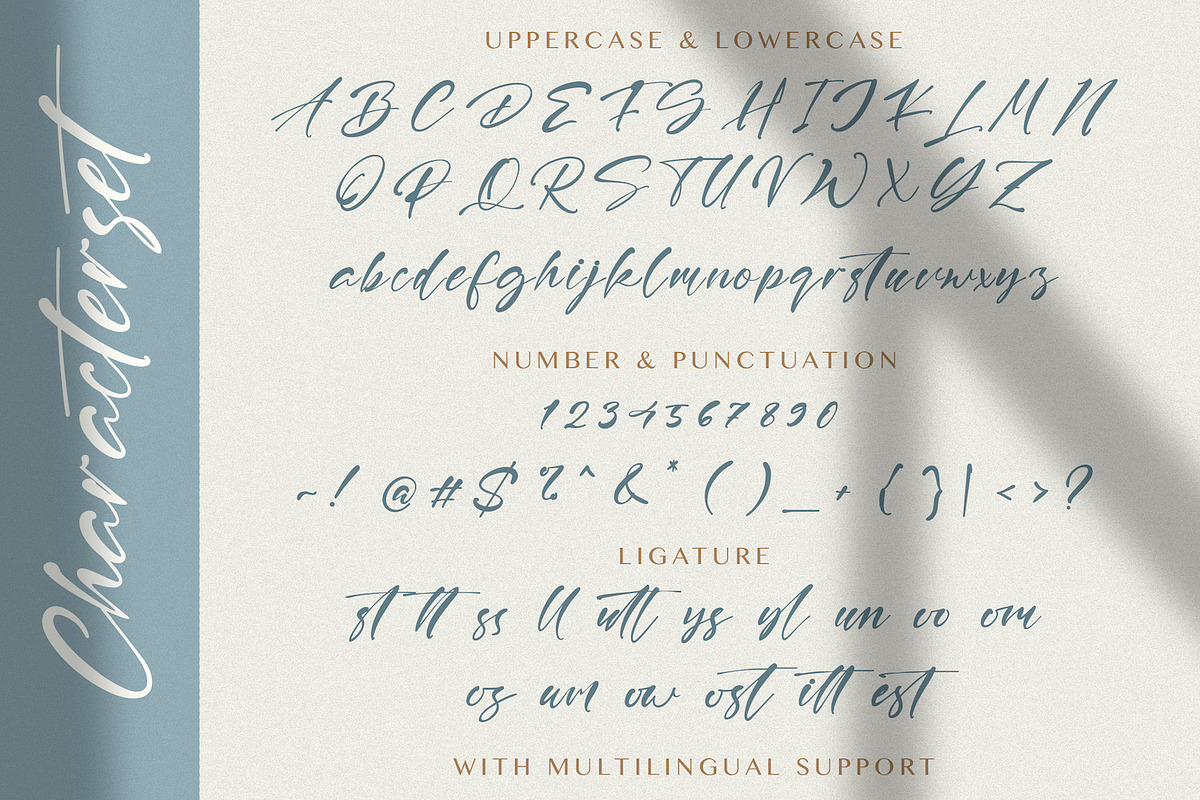 Characterset
UPPERCASE & LOWERCASE
A B C D E F G H I J K L M N
O P Q R S T U V W X Y Z
a b c d e f g h i j k l m n o p q r s t u v w x y z
NUMBER & PUNCTUATION
1 2 3 4 5 6 7 8 9 0
~ ! @ # $ % ^ & * ( ) _ + { } | < > ?
LIGATURE
st tt ss ll utt ys yl un oo om
os um ow ost itt est
WITH MULTILINGUAL SUPPORT